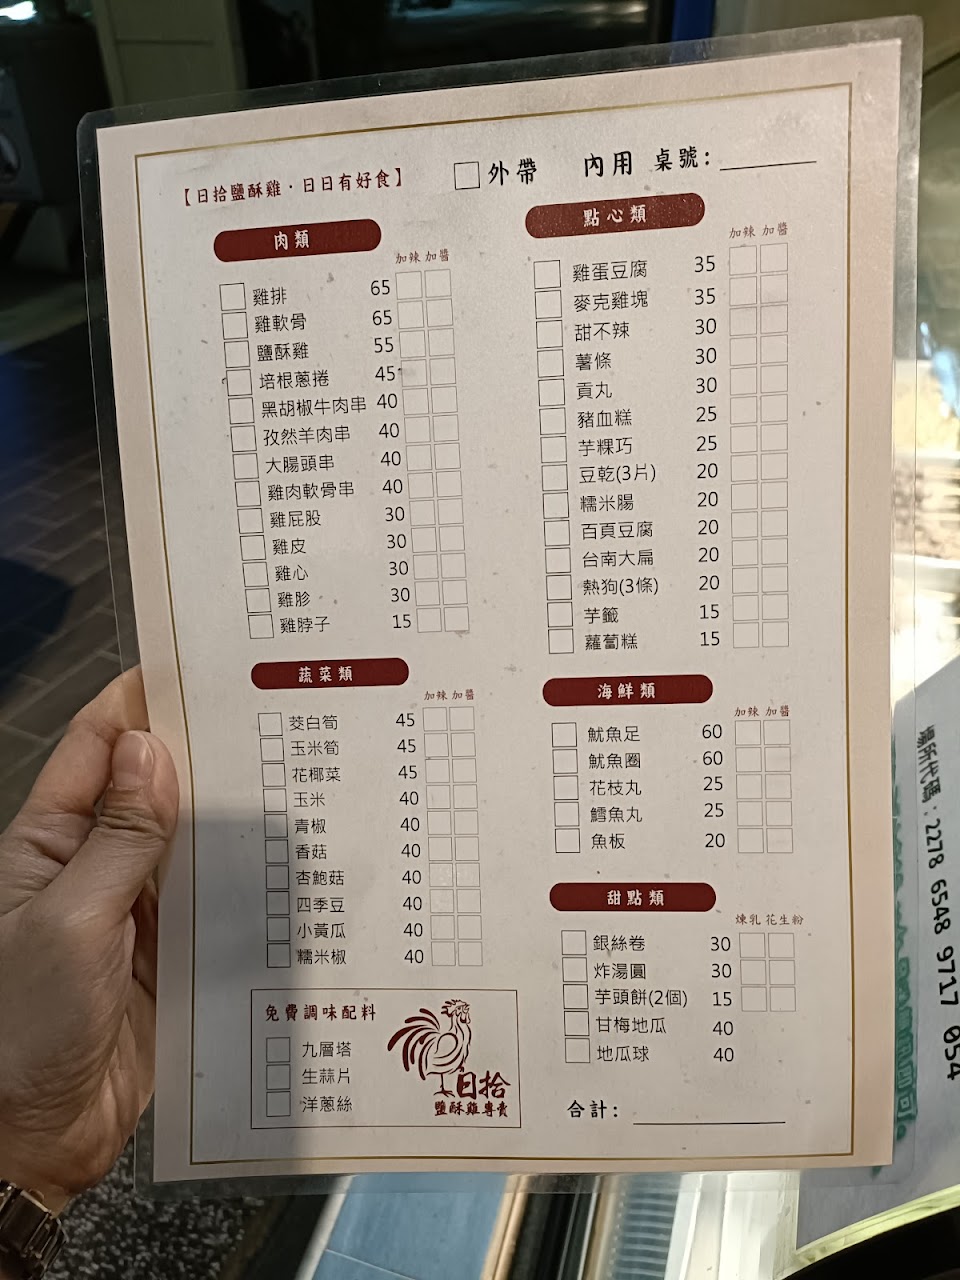 【日拾鹽酥雞·日日有好食】
外帶 內用 桌號：
肉類
加辣 加醬
雞排 65
雞軟骨 65
鹽酥雞 55
培根蔥捲 45
黑胡椒牛肉串 40
孜然羊肉串 40
大腸頭串 40
雞肉軟骨串 40
雞屁股 30
雞皮 30
雞心 30
雞胗 30
雞脖子 15
蔬菜類
加辣 加醬
茭白筍 45
玉米筍 45
花椰菜 45
玉米 40
青椒 40
香菇 40
杏鮑菇 40
四季豆 40
小黃瓜 40
糯米椒 40
免費調味配料
九層塔
生蒜片
洋蔥絲
日拾
鹽酥雞專賣
點心類
加辣 加醬
雞蛋豆腐 35
麥克雞塊 35
甜不辣 30
薯條 30
貢丸 30
豬血糕 25
芋粿巧 25
豆乾(3片) 20
糯米腸 20
百頁豆腐 20
台南大扁 20
熱狗(3條) 20
芋籤 15
蘿蔔糕 15
海鮮類
加辣 加醬
魷魚足 60
魷魚圈 60
花枝丸 25
鱈魚丸 25
魚板 20
甜點類
煉乳 花生粉
銀絲卷 30
炸湯圓 30
芋頭餅(2個) 15
甘梅地瓜 40
地瓜球 40
合計：
場所代碼：2278 6548 9717 054